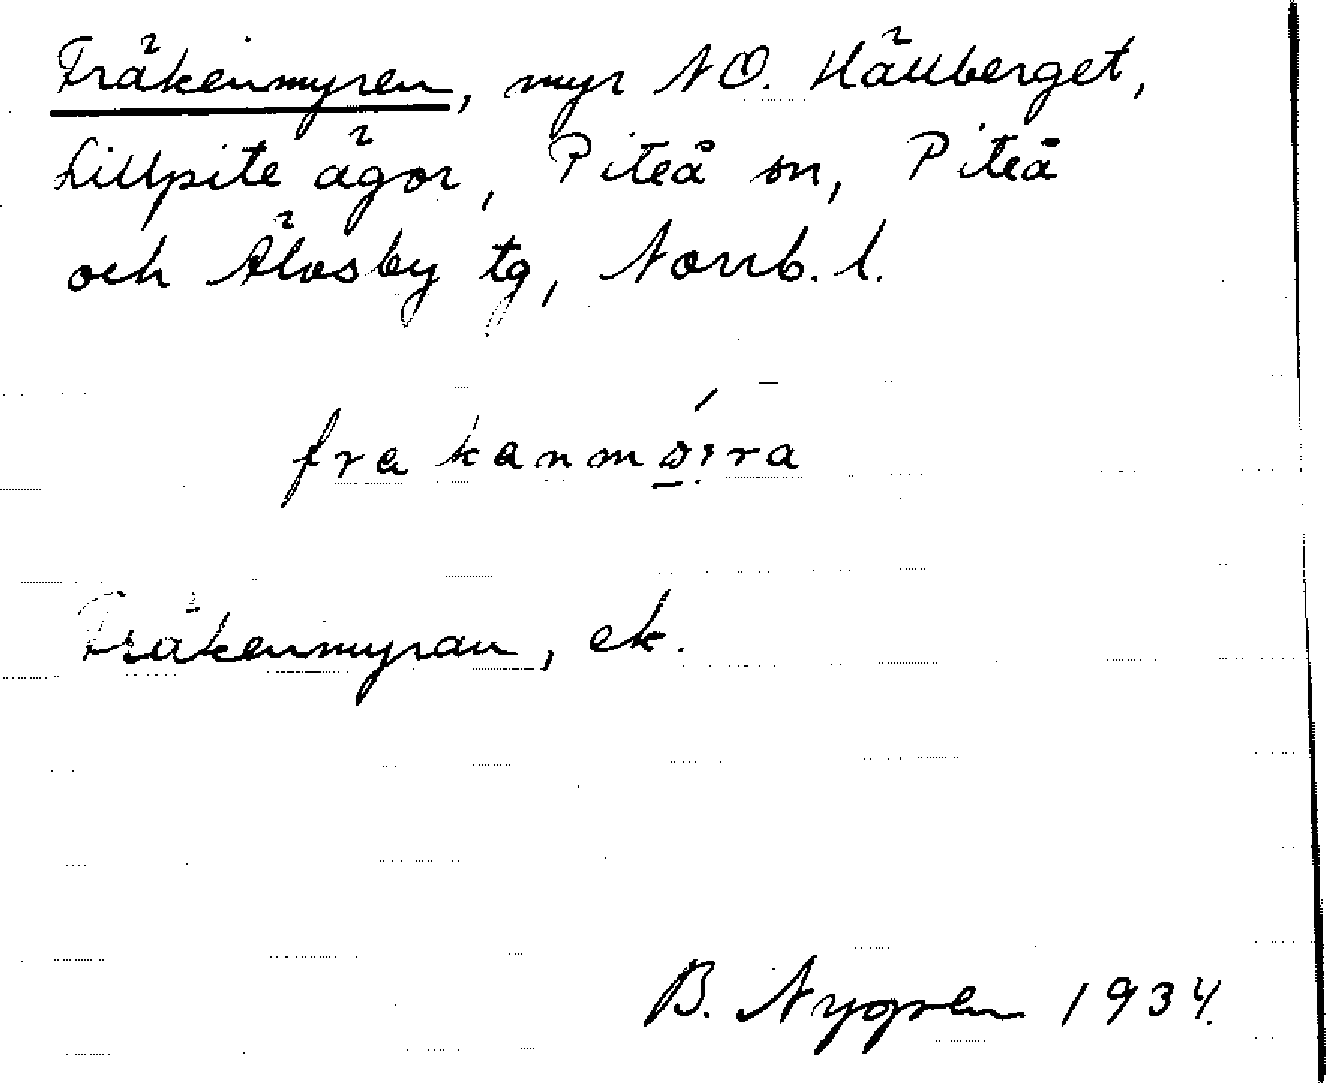 Fräkenmyren, myr NO. Hällberget,
Lillpite ägor, Piteå sn, Piteå
och Älvsby tg, Norrb. l.
Fräkenmyran, ek.
B. Nygren 1934.